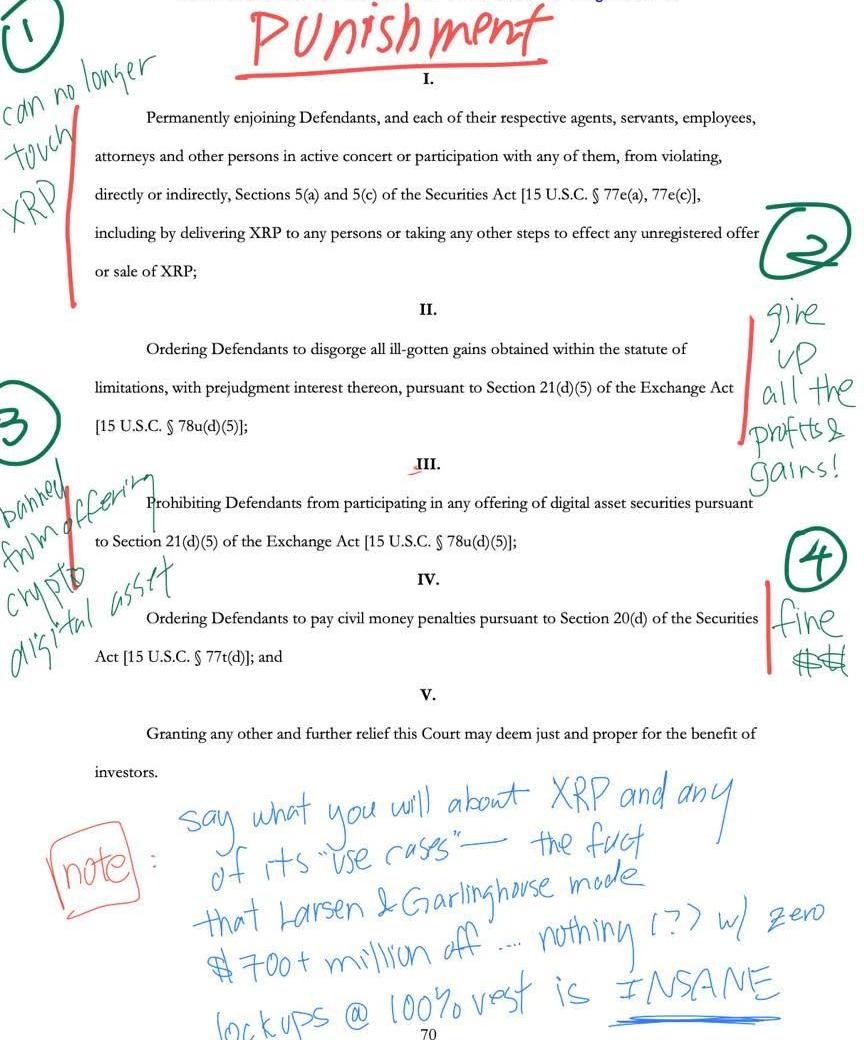 Punishment
I.
1
can no longer
touch
XRP
Permanently enjoining Defendants, and each of their respective agents, servants, employees,
attorneys and other persons in active concert or participation with any of them, from violating,
directly or indirectly, Sections 5(a) and 5(c) of the Securities Act [15 U.S.C. § 77e(a), 77e(c)],
including by delivering XRP to any persons or taking any other steps to effect any unregistered offer
or sale of XRP;
2
give
up
all the
profits &
gains!
II.
Ordering Defendants to disgorge all ill-gotten gains obtained within the statute of
limitations, with prejudgment interest thereon, pursuant to Section 21(d)(5) of the Exchange Act
[15 U.S.C. § 78u(d)(5)];
3
banned
from offering
crypto
digital asset
III.
Prohibiting Defendants from participating in any offering of digital asset securities pursuant
to Section 21(d)(5) of the Exchange Act [15 U.S.C. § 78u(d)(5)];
4
fine
$$
IV.
Ordering Defendants to pay civil money penalties pursuant to Section 20(d) of the Securities
Act [15 U.S.C. § 77t(d)]; and
V.
Granting any other and further relief this Court may deem just and proper for the benefit of
investors.
note :
say what you will about XRP and any
of its "use cases" — the fact
that Larsen & Garlinghouse made
$700+ million off .... nothing (?) w/ zero
lockups @ 100% vest is INSANE
70